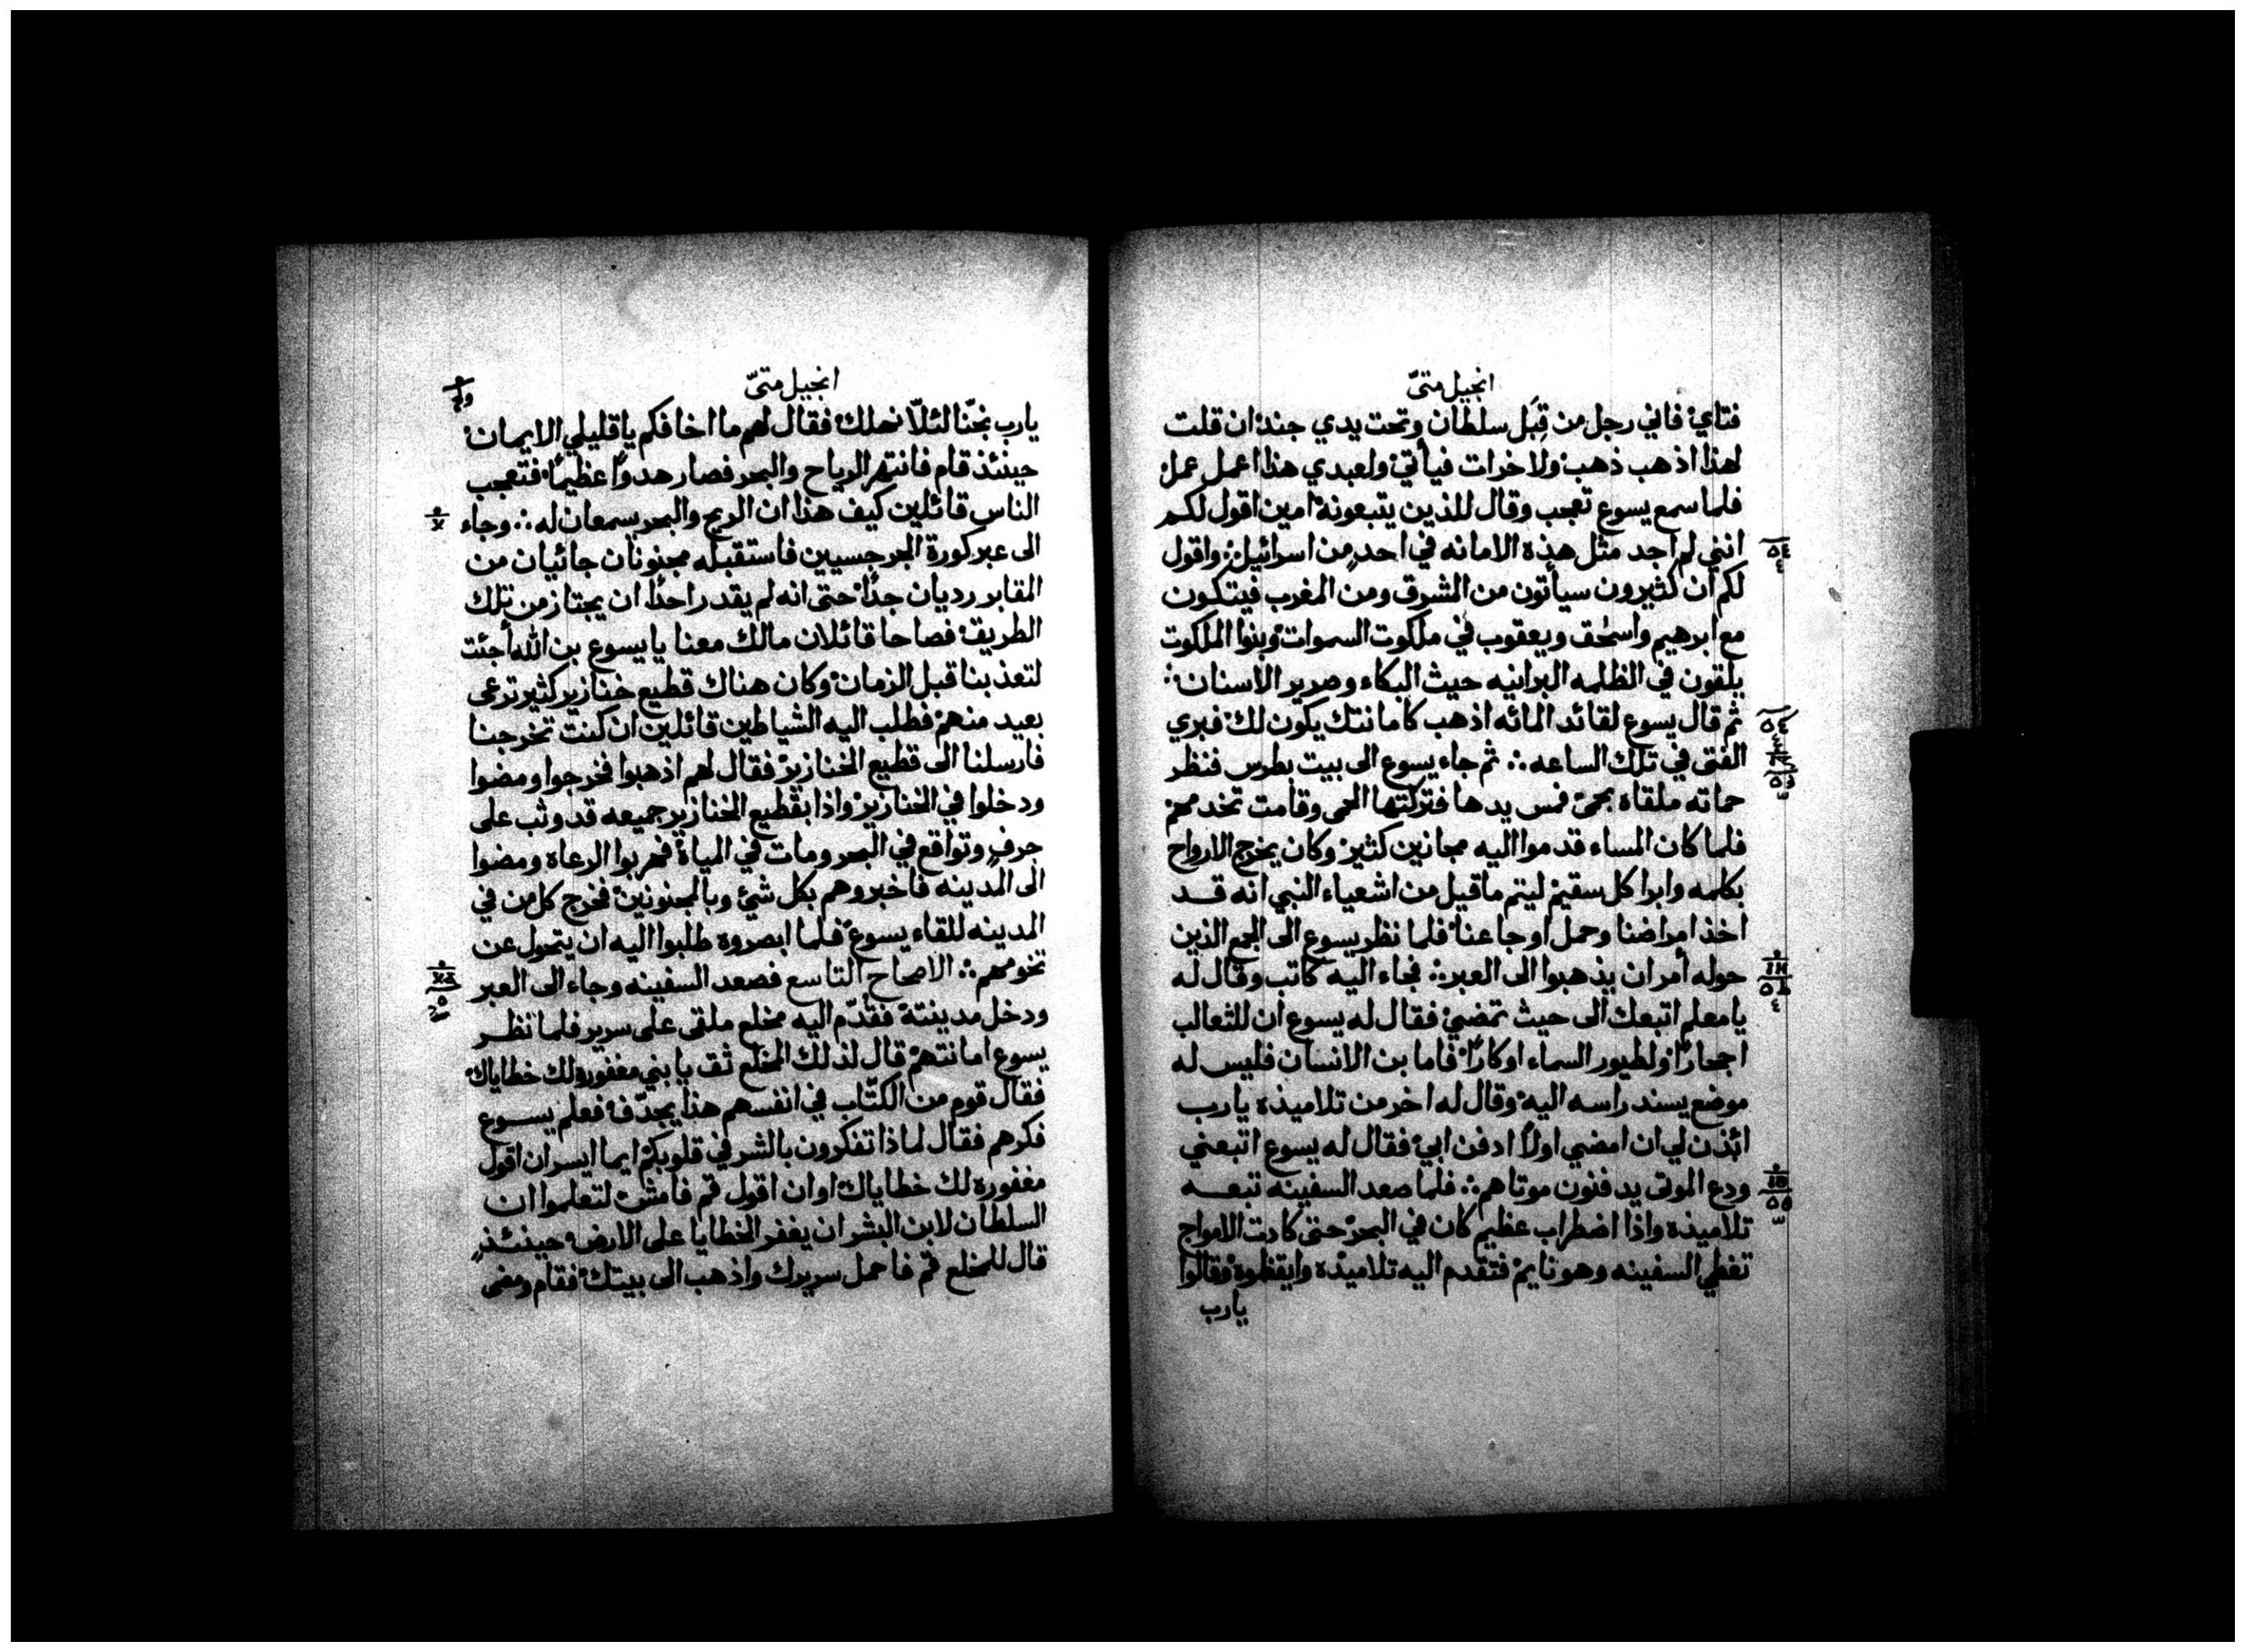 انجيل متىّ
فتاي فاني رجل من قِبَل سلطان وتحت يدي جند ان قلت
لهذا اذهب ذهب ولاخرات فيأتي ولعبدي هذا اعمل عمل
فلما سمع يسوع تعجب وقال للذين يتبعونه امين اقول لكم
انني لم اجد مثل هذه الامانه في احدٍ من اسرائيل∴ واقول
لكم ان كثيرون سيأتون من الشرق ومن المغرب فيتكون
مع ابرهيم واسحٰق ويعقوب في ملكوت السموات وبنوا الملكوت
يلقون في الظلمه البرانيه حيث البكاء وصرير الاسنان
ثم قال يسوع لقائد المائه اذهب كامانتك يكون لك فبري
الفتى في تلك الساعه∴ ثم جاء يسوع الى بيت بطرس فنظر
حماته ملقاه بحمى فمس يدها فتركتها الحمى وقامت تخدمهم
فلما كان المساء قدموا اليه مجانين كثير وكان يخرج الارواح
بكلمه وابرا كل سقيم ليتم ما قيل من اشعياء النبي انه قد
اخذ امراضنا وحمل اوجاعنا فلما نظر يسوع الى الجمع الذين
حوله أمر ان يذهبوا الى العبر∴ فجاء اليه كاتب وقال له
يا معلم اتبعك الى حيث تمضي فقال له يسوع ان للثعالب
اجحارًا ولطيور السماء اوكارًا فاما بن الانسان فليس له
موضع يسند راسه اليه وقال له اخر من تلاميذه يارب
ائذن لي ان امضي اولًا ادفن ابي فقال له يسوع اتبعني
ودع الموتى يدفنون موتاهم∴ فلما صعد السفينه تبعه
تلاميذه واذا اضطراب عظيم كان في البحر حتى كادت الامواج
تغطي السفينه وهو نايم فتقدم اليه تلاميذه وايقظوه فقالوا
يارب
انجيل متىّ
يارب نجّنا لئلّا نهلك فقال لهم ما اخافكم يا قليلي الايمان
حينئذ قام فانتهر الرياح والبحر فصار هدوًا عظيمًا فتعجب
الناس قائلين كيف هذا ان الريح والبحر يسمعان له∴ وجاء
الى عبر كورة الجرجسيين فاستقبله مجنونان جائيان من
المقابر رديان جدًا حتى انه لم يقدر احدًا ان يجتاز من تلك
الطريق فصاحا قائلان مالك معنا يا يسوع بن الله أجئت
لتعذبنا قبل الزمان وكان هناك قطيع خنازير كثير ترعى
بعيد منهم فطلب اليه الشياطين قائلين ان كنت تخرجنا
فارسلنا الى قطيع الخنازير فقال لهم اذهبوا فخرجوا ومضوا
ودخلوا في الخنازير واذا بقطيع الخنازير جميعه قد وثب على
جرفٍ وتواقع في البحر ومات في المياة فهربوا الرعاه ومضوا
الى المدينه فاخبروهم بكل شئ وبالمجنونين فخرج كل من في
المدينه للقاء يسوع فلما ابصروه طلبوا اليه ان يتحول عن
تخومهم∴ الاصحاح التاسع فصعد السفينه وجاء الى العبر
ودخل مدينتة فقدّم اليه مخلع ملقى على سرير فلما نظر
يسوع امانتهم قال لذلك المخلع ثق يا بني مغفوره لك خطاياك
فقال قوم من الكتّاب في انفسهم هذا يجدّف فعلم يسوع
فكرهم فقال لماذا تفكرون بالشر في قلوبكم ايما ايسر ان اقول
مغفوره لك خطاياك او ان اقول قم فامش لتعلموا ان
السلطان لابن البشر ان يغفر الخطايا على الارض حينئذٍ
قال للمخلع قم فاحمل سريرك واذهب الى بيتك فقام ومضى